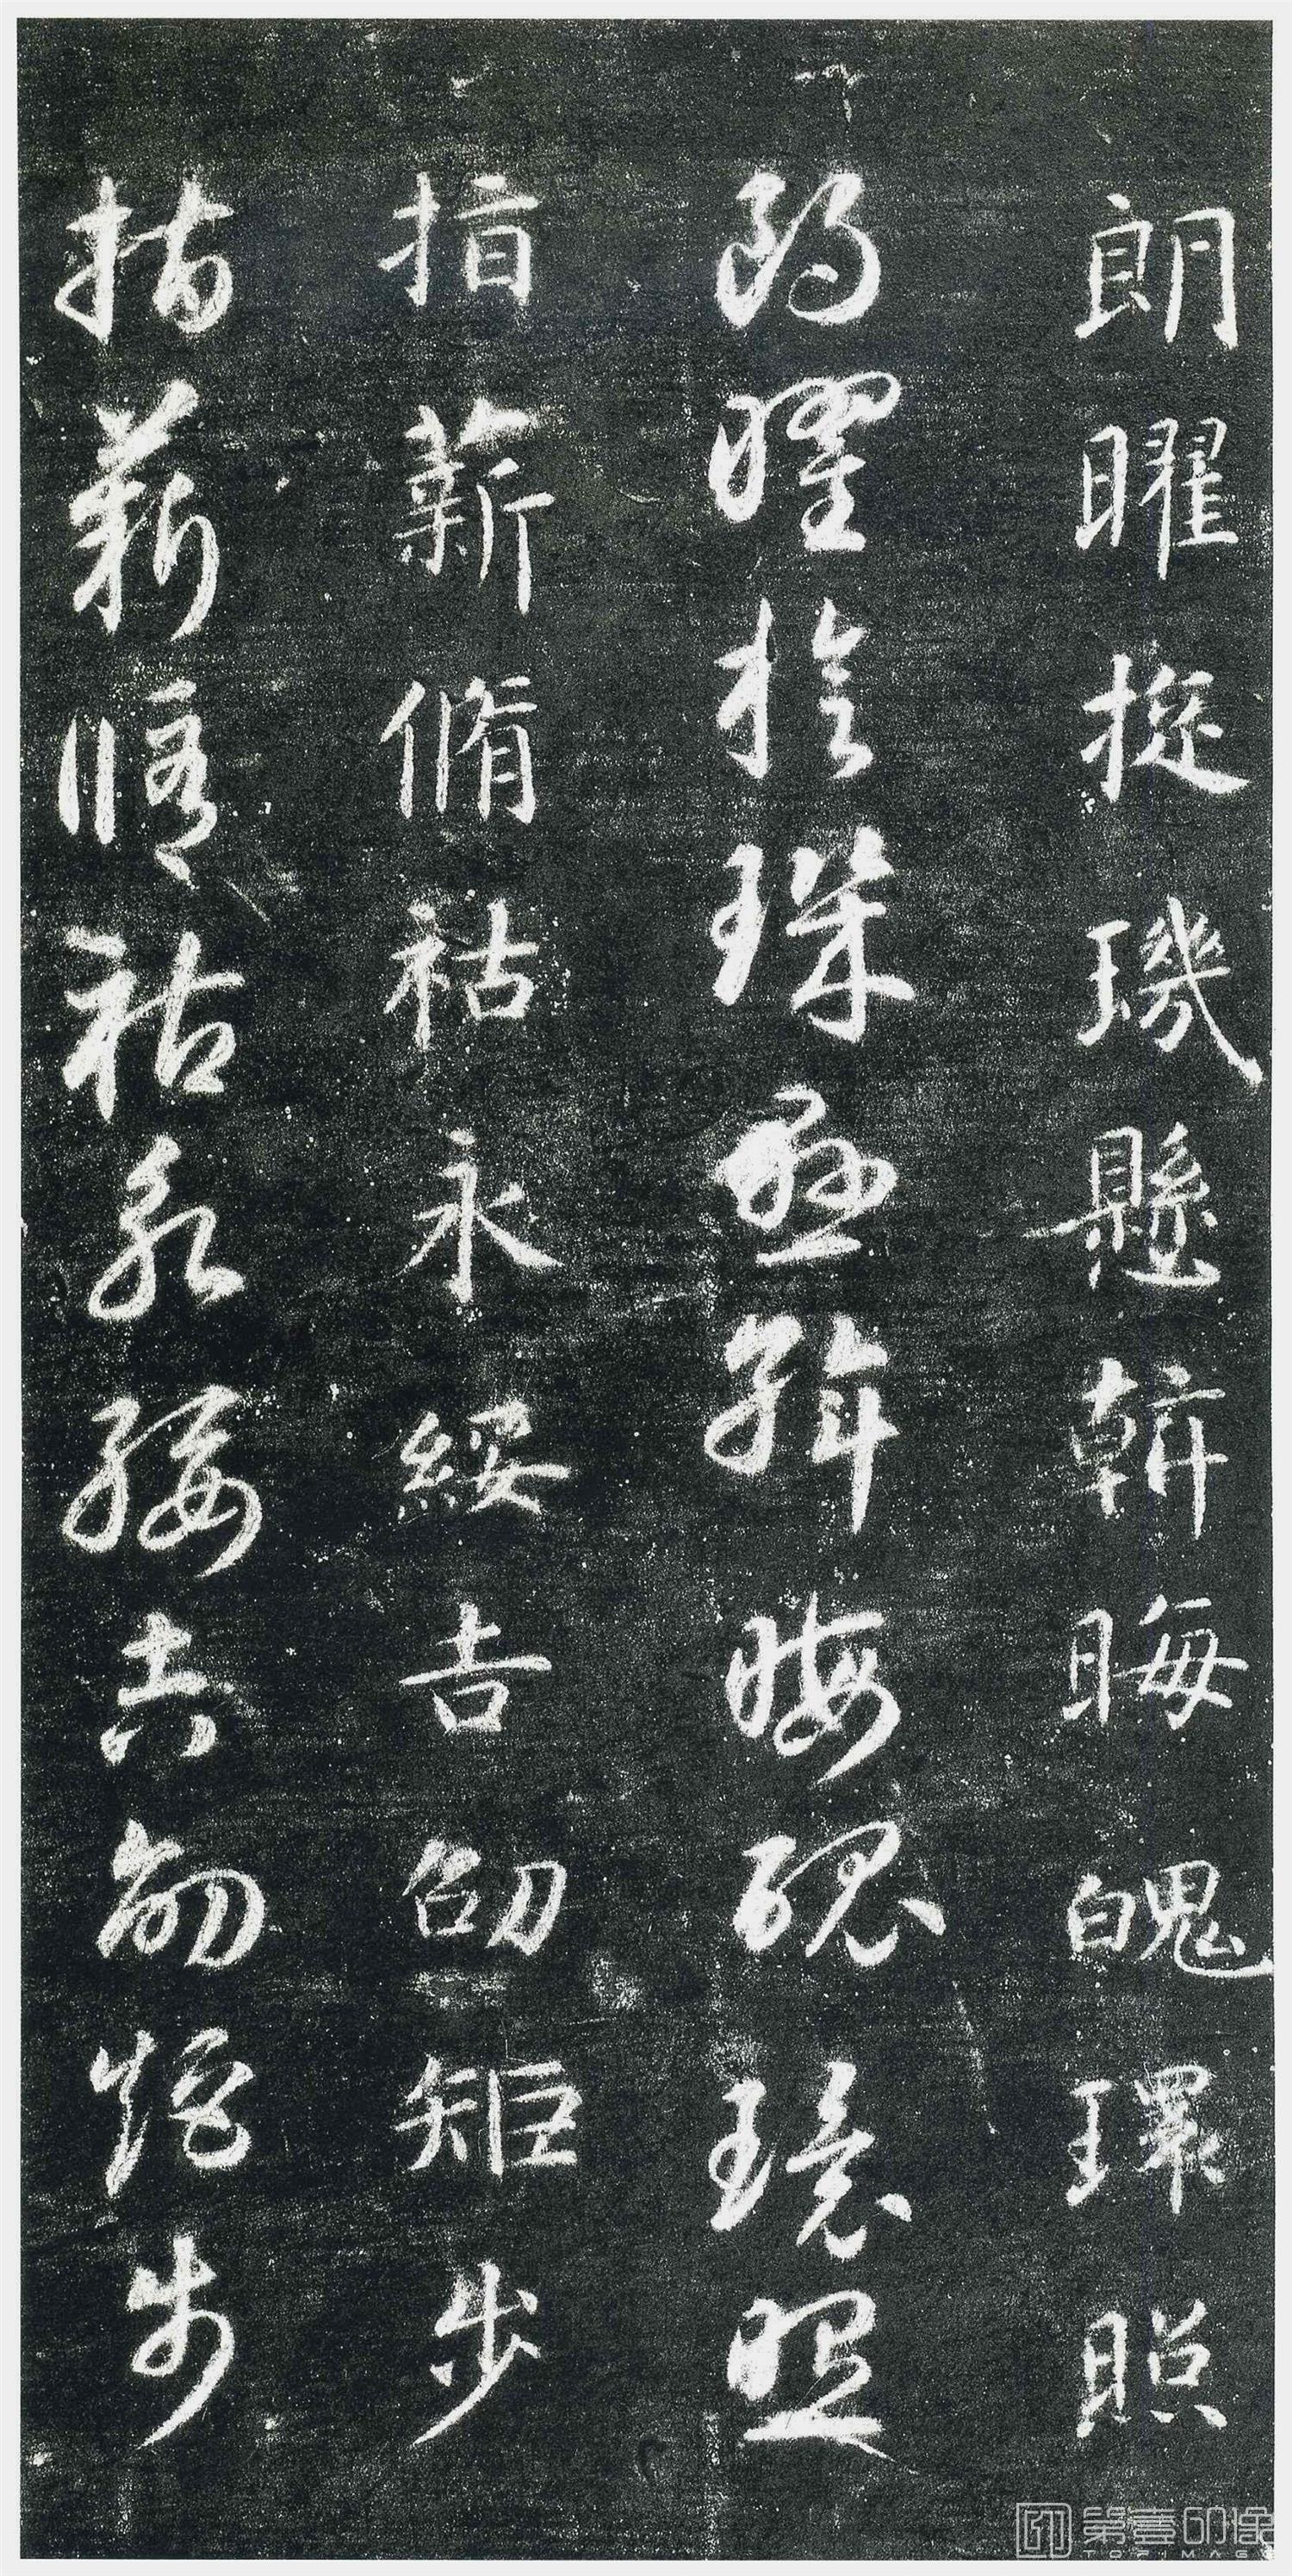 朗曜捉璣懸斡晦魄環照
朗曜捉璣懸斡晦魄環照
指薪脩祜永綏吉劭矩步
指薪脩祜永綏吉劭矩步
第壹印像
TOPIMAGE